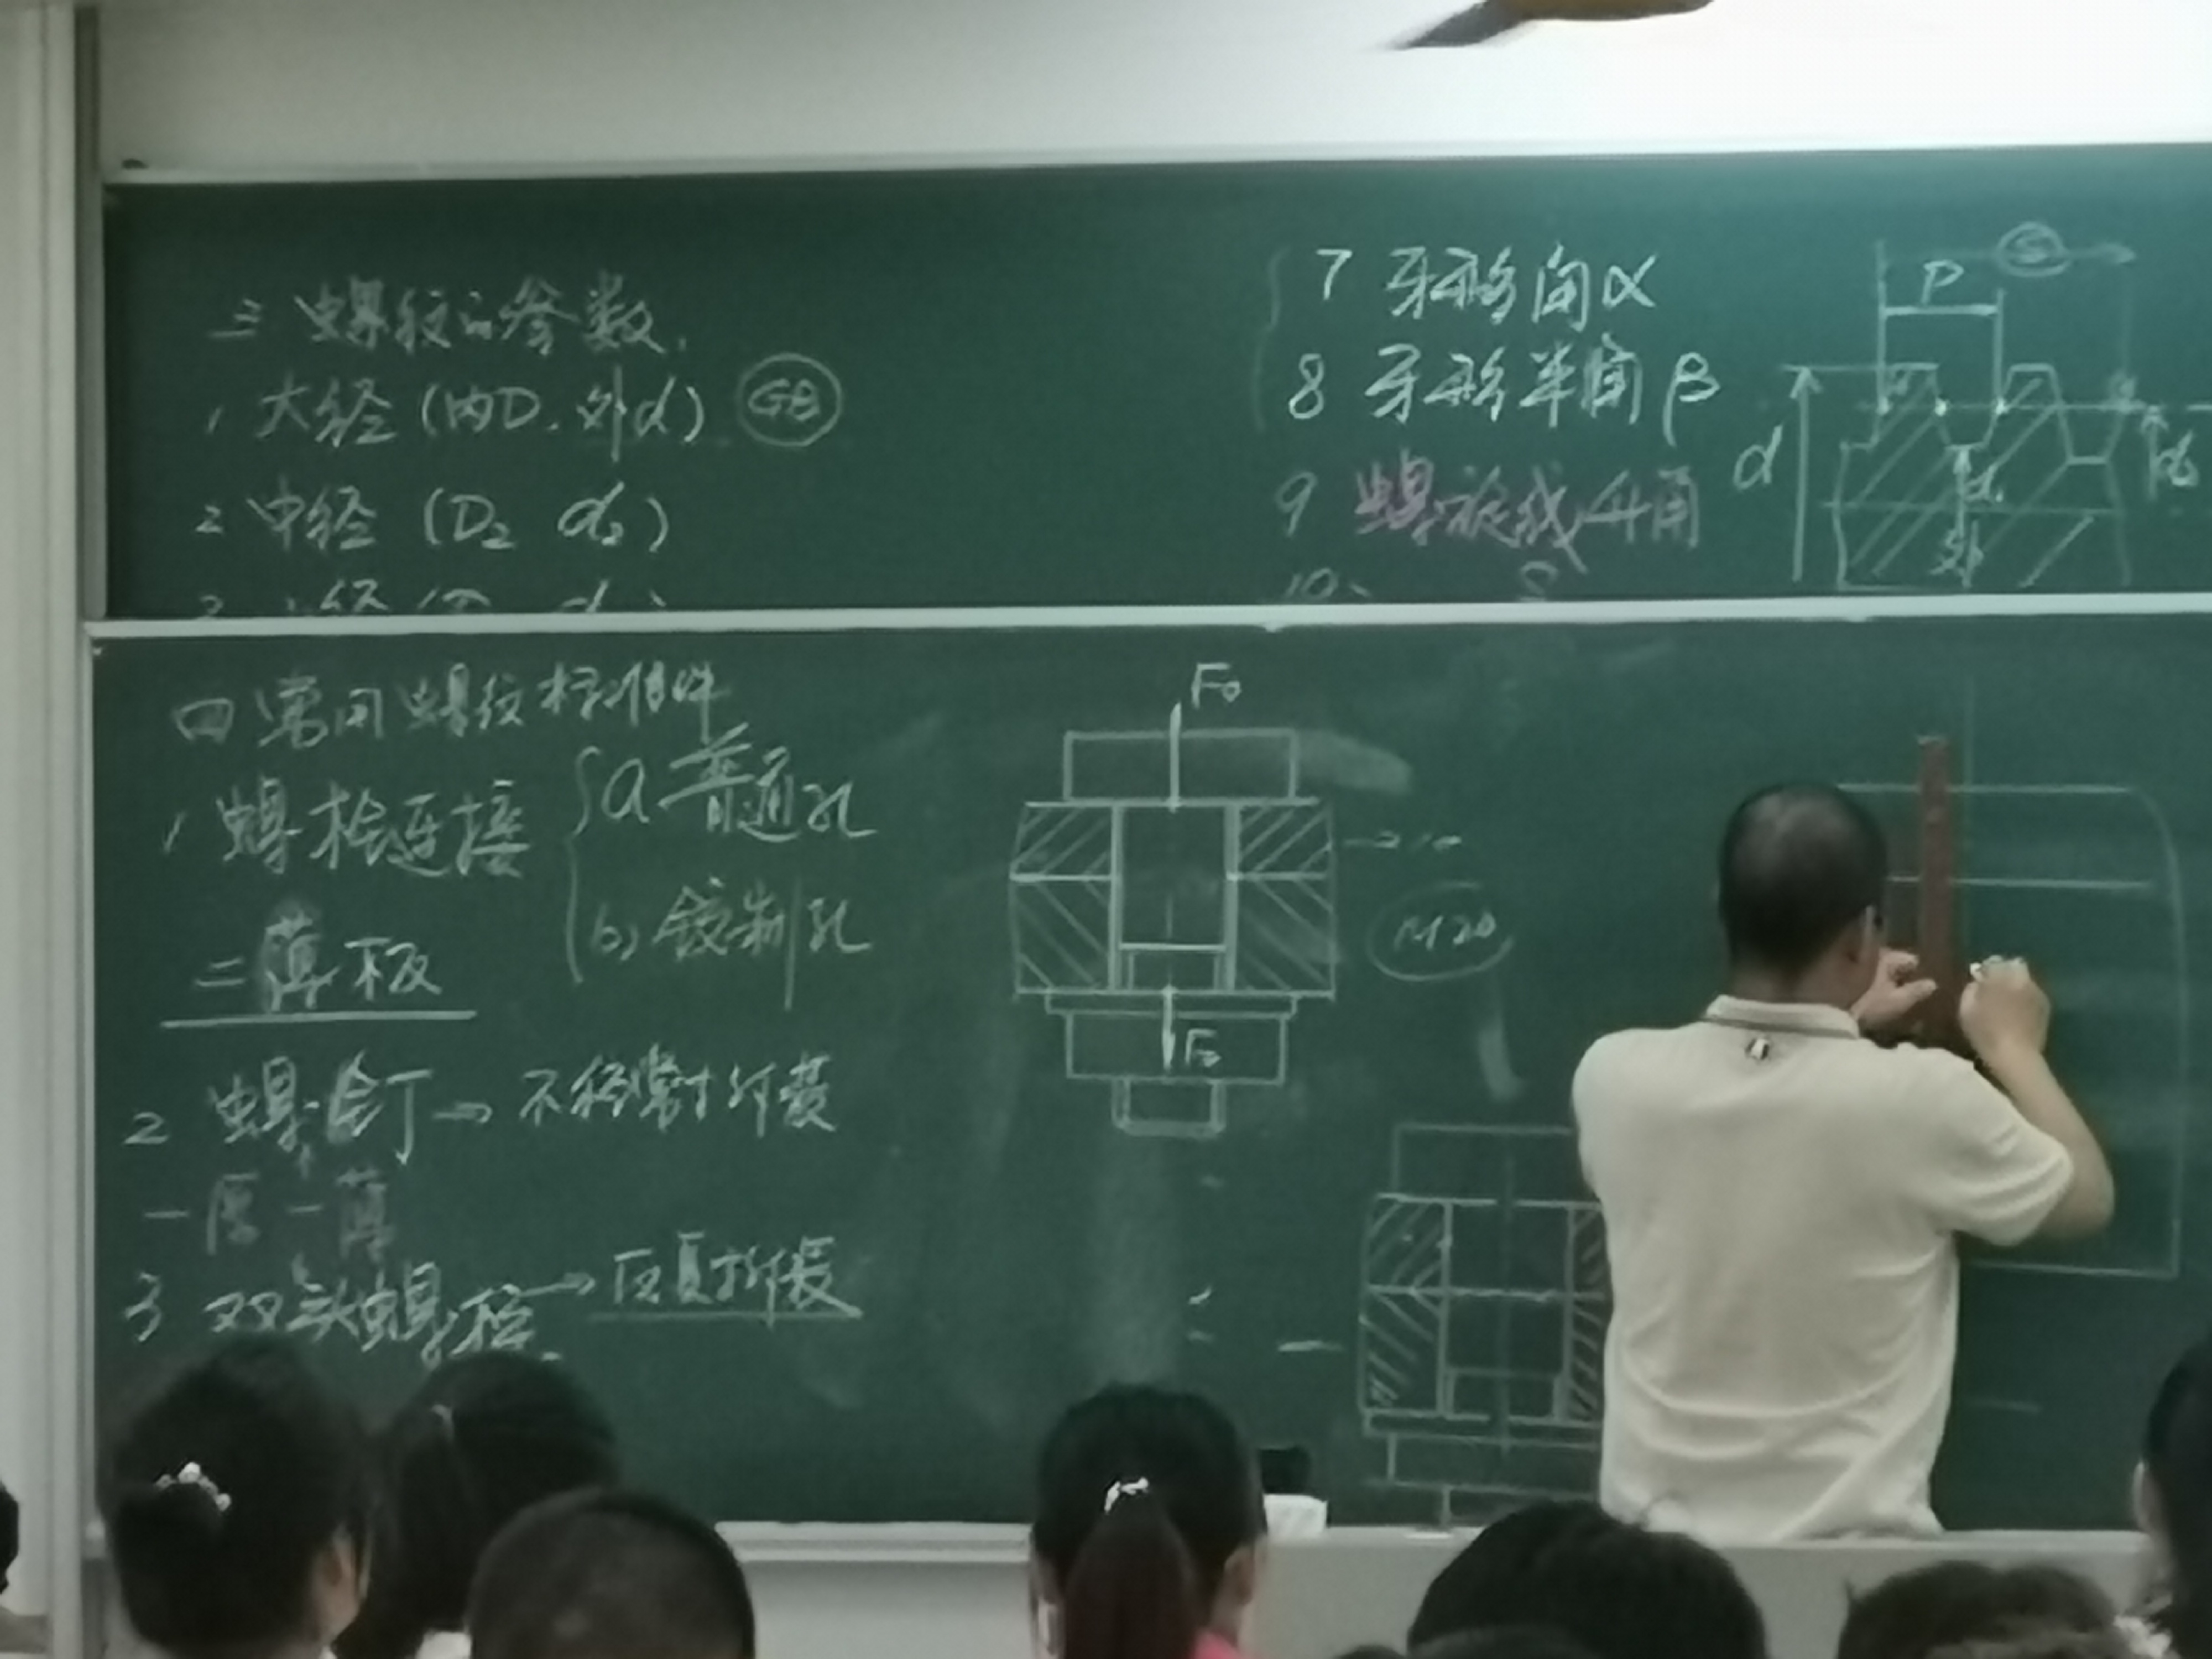 三 螺纹的参数.
1 大径 (内D. 外d) GB
2 中径 (D2 d2)
7 牙形角α
8 牙形半角β
9 螺旋线升角
10、
S
P
d
四 常用螺纹标准件
1 螺栓连接
a 普通孔
b) 铰制孔
二薄板
2 螺钉 → 不经常拆装
一厚一薄
3 双头螺栓 → 反复拆装
F0
M20
F0